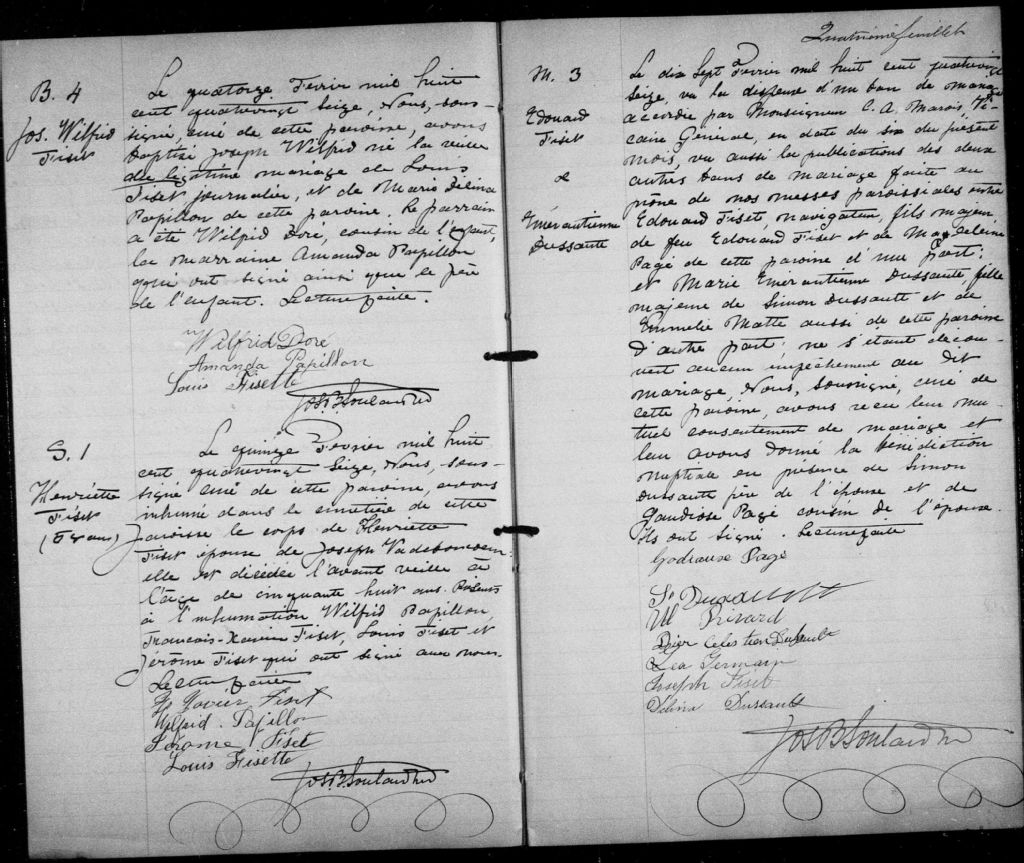 B. 4
Jos. Wilfrid
Fiset
Le quatorze Fevrier mil huit
cent quatrevingt Seize, Nous, sous-
signé, curé de cette paroisse, avons
baptisé Joseph Wilfrid né la veille
du légitime mariage de Louis
Fiset journalier, et de Marie Zélina
Papillon de cette paroisse. Le parrain
a été Wilfrid Doré, cousin de l'enfant,
la marraine Amanda Papillon
qui ont signé ainsi que le père
de l'enfant. Lecture faite.
Wilfrid Doré
Amanda Papillon
Louis Fisette
Jos B Soulard
S. 1
Henriette
Fiset
(58 ans)
Le quinze Fevrier mil huit
cent quatrevingt Seize, Nous, sous-
signé curé de cette paroisse, avons
inhumé dans le cimetière de cette
paroisse le corps de Henriette
Fiset épouse de Joseph Vadeboncoeur
elle est décédée l'avant veille à
l'âge de cinquante huit ans. Présents
à l'inhumation Wilfrid Papillon,
Francois-Xavier Fiset, Louis Fiset et
Jérôme Fiset qui ont signé avec nous.
Lecture faite
F Xavier Fiset
Wilfrid Papillon
Jérome Fiset
Louis Fisette
Jos B Soulard
Quatrième feuillet
M. 3
Edouard
Fiset
&
Emérantienne
Dussault
Le dix Sept Fevrier mil huit cent quatrevingt
Seize, vu la dispense d'un ban de mariage
accordée par Monseigneur C. A. Marois Vi-
caire Général, en date du six du présent
mois, vu aussi la publications des deux
autres bans de mariage faite au
prône de nos messes paroissiales entre
Edouard Fiset, navigateur, fils majeur
de feu Edouard Fiset et de Magdeleine
Pagé de cette paroisse d'une part;
et Marie Emérantienne Dussault, fille
majeure de Simon Dussault et de
Emmélie Matte aussi de cette paroisse
d'autre part; ne s'étant décou-
vert aucun empêchement au dit
mariage, Nous, soussigné, curé de
cette paroisse, avons reçu leur mu-
tuel consentement de mariage et
leur avons donné la bénédiction
nuptiale en présence de Simon
Dussault père de l'épouse et de
Gaudiose Pagé cousin de l'épouse.
Ils ont signé. Lecture faite
Godiause Page
Sn Dussault
Celestien Dussault
Léa Germain
Joseph Fiset
Zélina Dussault
Jos B Soulard